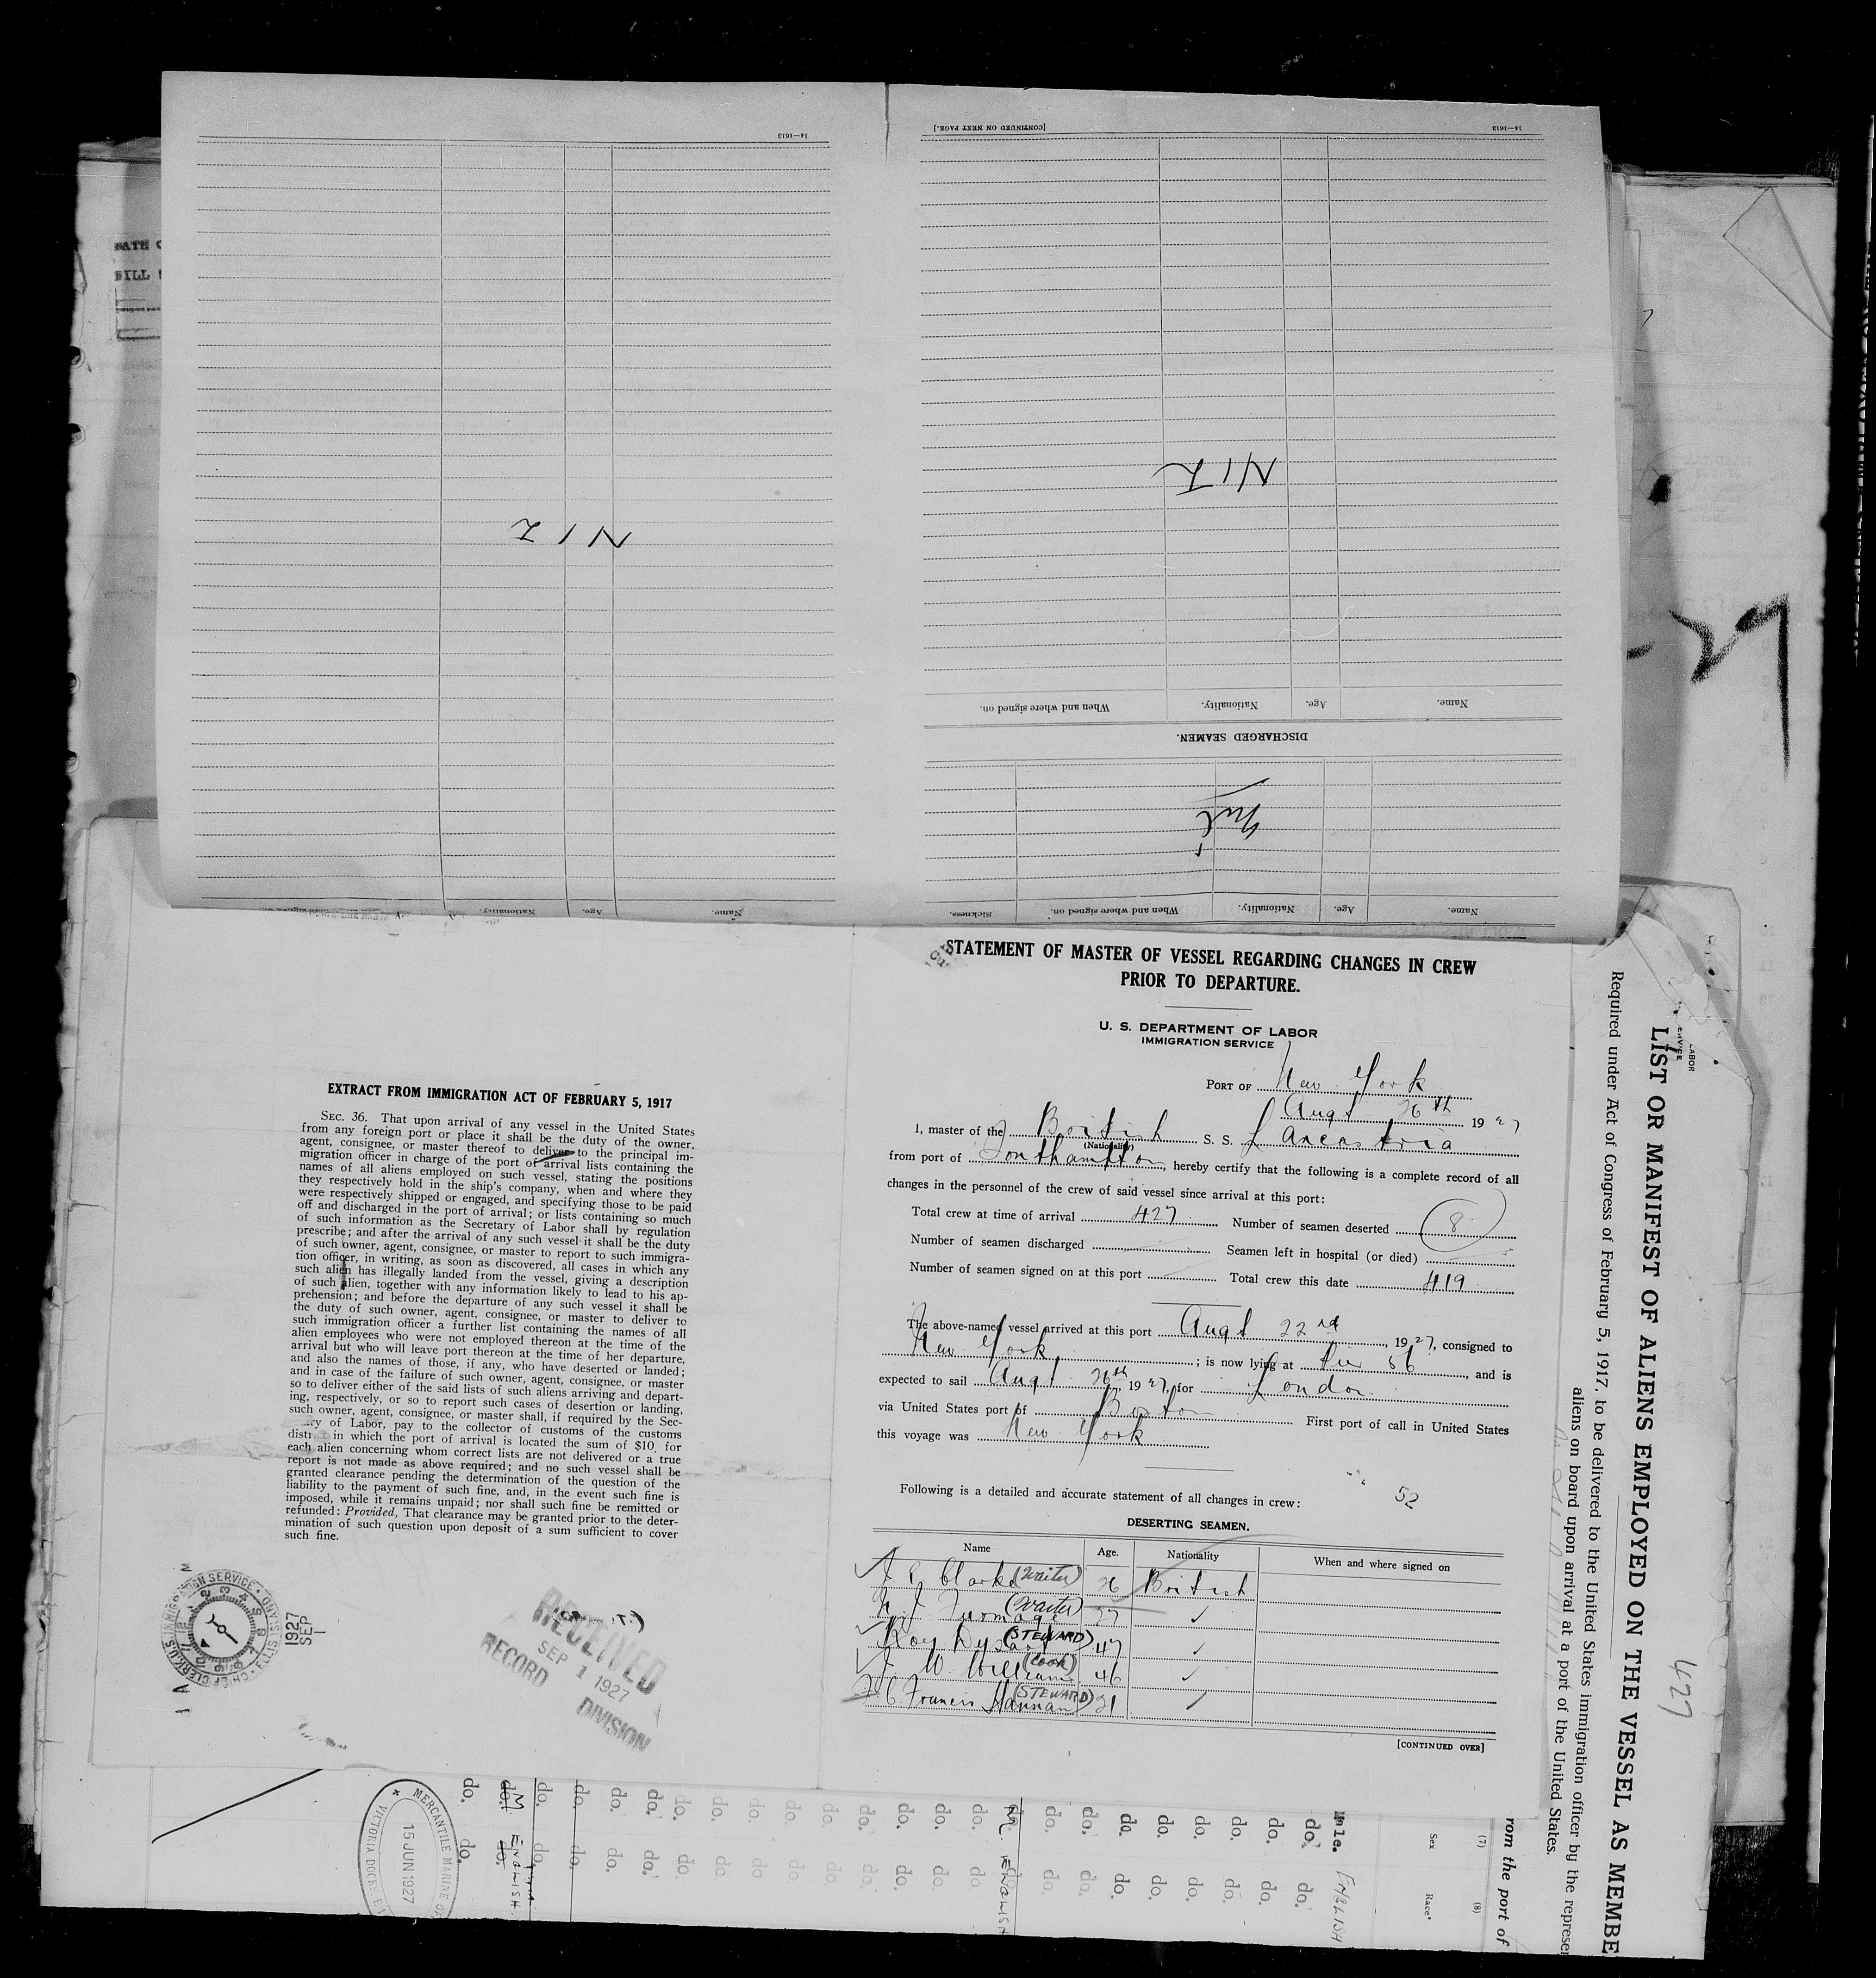 14—1613
[CONTINUED ON NEXT PAGE.]
14—1613
NIL
NIL
Name. Age. Nationality. When and where signed on.
DISCHARGED SEAMEN.
Nil
Name. Age. Nationality. When and where signed on. Sickness.
Name. Age. Nationality.
STATEMENT OF MASTER OF VESSEL REGARDING CHANGES IN CREW
PRIOR TO DEPARTURE.
U. S. DEPARTMENT OF LABOR
IMMIGRATION SERVICE
PORT OF New York
Augt 26th 1927
I, master of the British S. S. Lancastria
(Nationality)
from port of Southampton, hereby certify that the following is a complete record of all
changes in the personnel of the crew of said vessel since arrival at this port:
Total crew at time of arrival 427 Number of seamen deserted 8
Number of seamen discharged Seamen left in hospital (or died)
Number of seamen signed on at this port Total crew this date 419
The above-named vessel arrived at this port Augt 22nd, 1927, consigned to
New York; is now lying at Pier 56, and is
expected to sail Augt 26th, 1927, for London
via United States port of Boston First port of call in United States
this voyage was New York
Following is a detailed and accurate statement of all changes in crew: 52
DESERTING SEAMEN.
Name Age. Nationality When and where signed on
Clarke (Waiter) 26 British
(Waiter) 27 ✓
Roy Dysart (STEWARD) 47 ✓
W. Williams (Cook) 46 ✓
Francis Hannan (STEWARD) 21 ✓
[CONTINUED OVER]
EXTRACT FROM IMMIGRATION ACT OF FEBRUARY 5, 1917
SEC. 36. That upon arrival of any vessel in the United States
from any foreign port or place it shall be the duty of the owner,
agent, consignee, or master thereof to deliver to the principal im-
migration officer in charge of the port of arrival lists containing the
names of all aliens employed on such vessel, stating the positions
they respectively hold in the ship's company, when and where they
were respectively shipped or engaged, and specifying those to be paid
off and discharged in the port of arrival; or lists containing so much
of such information as the Secretary of Labor shall by regulation
prescribe; and after the arrival of any such vessel it shall be the duty
of such owner, agent, consignee, or master to report to such immigra-
tion officer, in writing, as soon as discovered, all cases in which any
such alien has illegally landed from the vessel, giving a description
of such alien, together with any information likely to lead to his ap-
prehension; and before the departure of any such vessel it shall be
the duty of such owner, agent, consignee, or master to deliver to
such immigration officer a further list containing the names of all
alien employees who were not employed thereon at the time of the
arrival but who will leave port thereon at the time of her departure,
and also the names of those, if any, who have deserted or landed;
and in case of the failure of such owner, agent, consignee, or master
so to deliver either of the said lists of such aliens arriving and depart-
ing, respectively, or so to report such cases of desertion or landing,
such owner, agent, consignee, or master shall, if required by the Sec-
ry of Labor, pay to the collector of customs of the customs
distr in which the port of arrival is located the sum of $10 for
each alien concerning whom correct lists are not delivered or a true
report is not made as above required; and no such vessel shall be
granted clearance pending the determination of the question of the
liability to the payment of such fine, and, in the event such fine is
imposed, while it remains unpaid; nor shall such fine be remitted or
refunded: Provided, That clearance may be granted prior to the deter-
mination of such question upon deposit of a sum sufficient to cover
such fine.
1927
SEP
1
RECEIVED
SEP 1 1927
RECORD DIVISION
LIST OR MANIFEST OF ALIENS EMPLOYED ON THE VESSEL AS MEMBE
Required under Act of Congress of February 5, 1917, to be delivered to the United States immigration officer by the represen
aliens on board upon arrival at a port of the United States.
427
rom the port of
(7) (8)
Sex Race*
Male. ENGLISH
do. do.
do. do.
do. do.
do. do.
do. do.
do. do.
do. do.
do. do.
M. ENGLISH
do. do.
do. do.
do. do.
do. do.
do. do.
do. do.
do. do.
do. do.
do. do.
do. do.
do. do.
do. do.
do. do.
M ENGLISH.
do. do.
MERCANTILE MARINE OF
15 JUN 1927
VICTORIA DOCKS E
-27